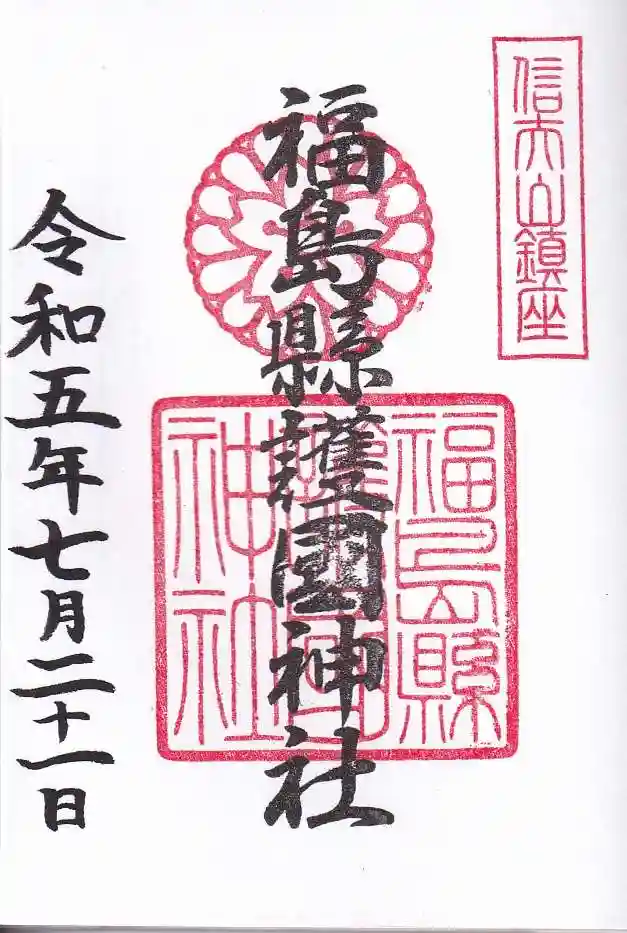 信夫山鎮座
福島縣護國神社
福島縣
護國
神社
令和五年七月二十一日